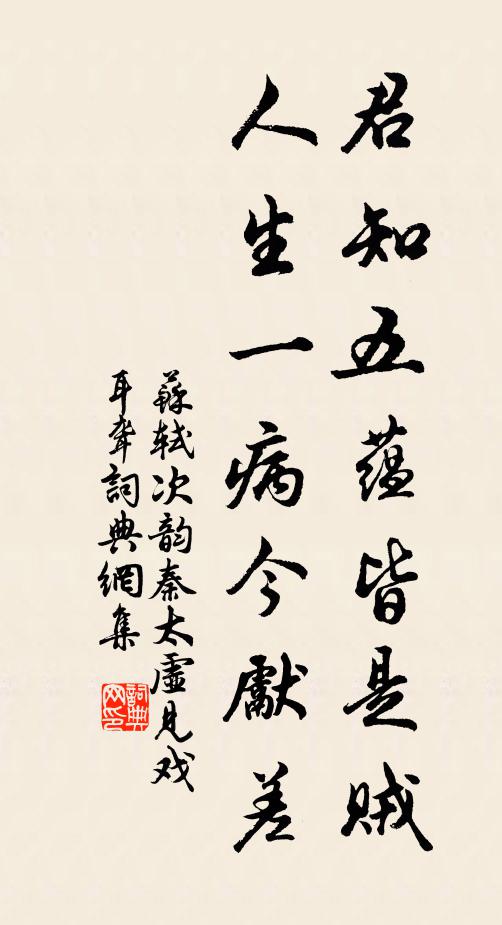 君知五蕴皆是賊
人生一病今獻差
蘇軾次韵秦太虛見戏
耳聋詞典網集
詞典
网印